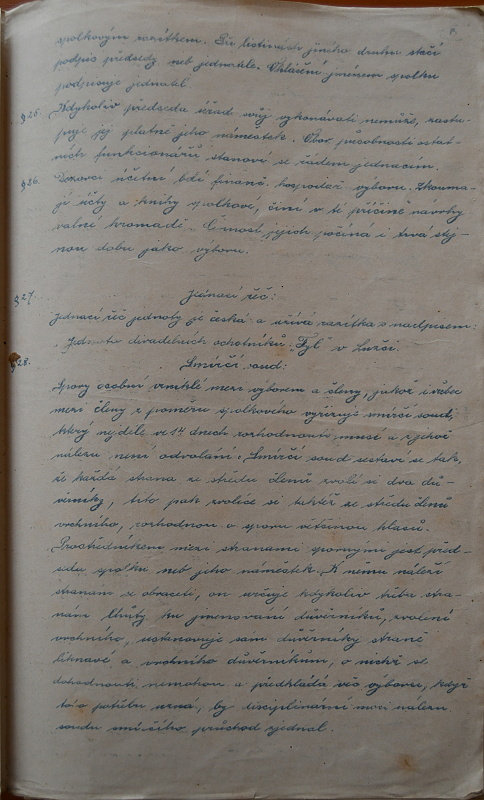 spolkovým razítkem. Na listinách jiného druhu stačí
podpis předsedy neb jednatele. Ohlášení jménem spolku
podpisuje jednatel
§ 25. Kdykoliv předseda úřad svůj vykonávati nemůže, zastu-
puje jej platně jeho náměstek. Obor působnosti ostat-
ních funkcionářů stanoví se řádem jednacím.
§ 26. Dozorci účetní bdí finanč. hospodář. výboru, zkouma-
jí účty a knihy spolkové, činí v té příčině návrhy
valné hromadě. Činnost jejich počíná i trvá stej-
nou dobu jako výboru.
§ 27. Jednací řeč:
Jednací řeč jednoty je česká a užívá razítka s nadpisem:
Jednota divadelních ochotníků "Tyl" v
§ 28. Smírčí soud:
Spory osobní vzniklé mezi výborem a členy, jakož i vůbec
mezi členy z poměru spolkového vyřizuje smírčí soud,
který nejdéle ve 14 dnech rozhodnouti musí a z jehož
nálezu není odvolání. Smírčí soud sestaví se tak,
že každá strana ze středu členů zvolí si dva dů-
věrníky, tito pak zvolíce si taktéž ze středu členů
vrchního, rozhodnou o sporu většinou hlasů.
Prostředníkem mezi stranami spornými jest před-
seda spolku neb jeho náměstek. K němu náleží
stranám se obraceti, on určuje kdykoliv třeba stra-
nám lhůty ku jmenování důvěrníků, zvolení
vrchního, ustanovuje sám důvěrníky straně
liknavé a vrchního důvěrníkům, o něhož se
dohodnouti nemohou a předkládá věc výboru, když
to o potřebu uzná, by disciplinární mocí nálezu
soudu smírčího průchod zjednal.